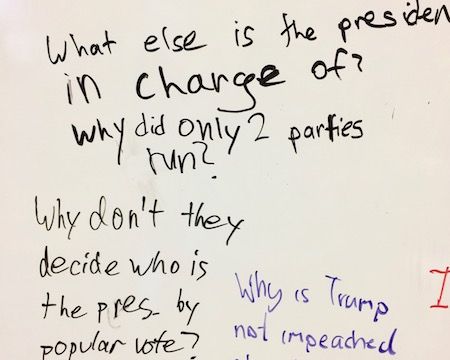 What else is the presiden
in charge of?
Why did only 2 parties
run?
Why don't they
decide who is
the pres. by
popular vote?
Why is Trump
not impeached
I